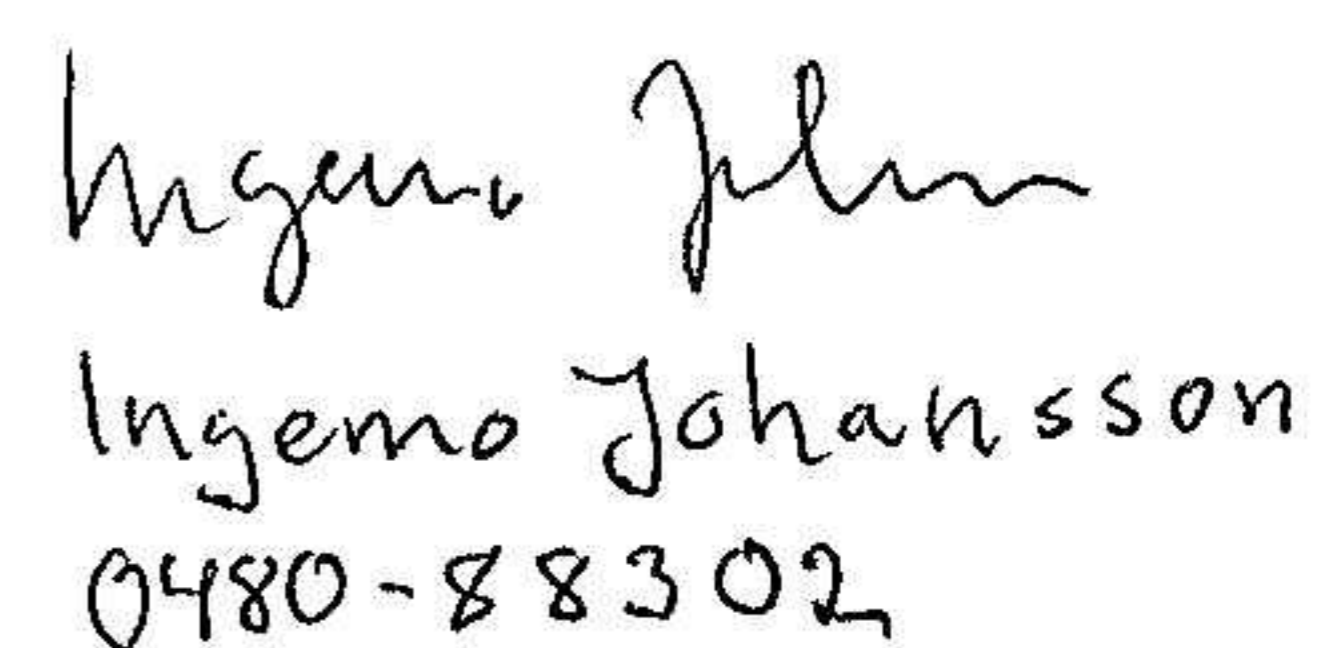 Ingemo Johansson
Ingemo Johansson
0480-88302